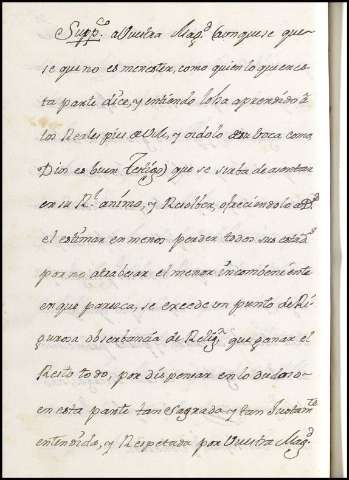 Supp.co a Vuestra Mag.d (aunque se que
se que no es menester, como quien lo que en es
ta parte dice, y entiendo lo ha aprendido â
los Reales pies de V.M. y oidolo de su boca, como
Dios es buen Testigo) que se sirva de asentar
en su R.l animo, y Resolver, ofreciendolo a D.s
el estimar en menos perder todos sus estad.s
por no atrabesar el menor incombeniente
en que paresca, se excede un punto de Ri-
gurosa observancia de Relig.n que ganar el
Resto todo, por dispensar en lo dudoso
en esta parte tan sagrada y tan Justam.te
entendida, y Respetada por Vuestra Mag.d